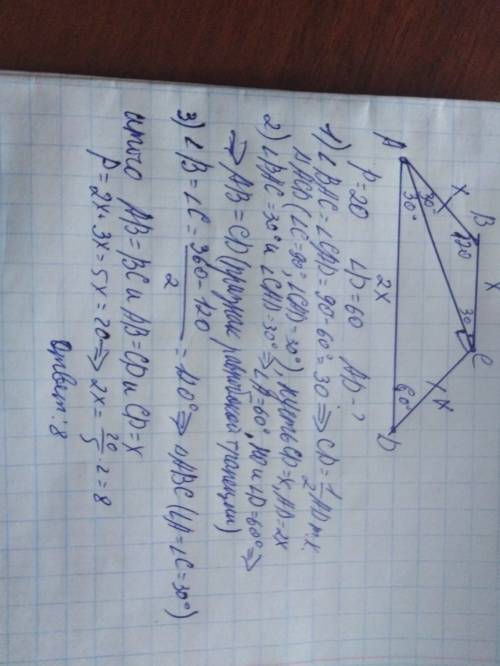 B x C
x 120 30
A 30° 30° x
2x 60° D
P=20 ∠D=60 AD-?
1) ∠BAC=∠CAD=90-60°=30 ⇒ CD=1/2AD т.к.
ΔACD (∠C=90°, ∠CAD=30°) пусть CD=x, AD=2x
2) ∠BAC=30° и ∠CAD=30° ⇒ ∠A=60°, но и ∠D=60° ⇒
⇒ AB=CD (признак равнобокой трапеции)
3) ∠B=∠C=360-120/2=120° ⇒ ΔABC (∠A=∠C=30°)
итого AB=BC и AB=CD и CD=x
P=2x+3x=5x=20 ⇒ 2x=20/5·2=8
Ответ: 8